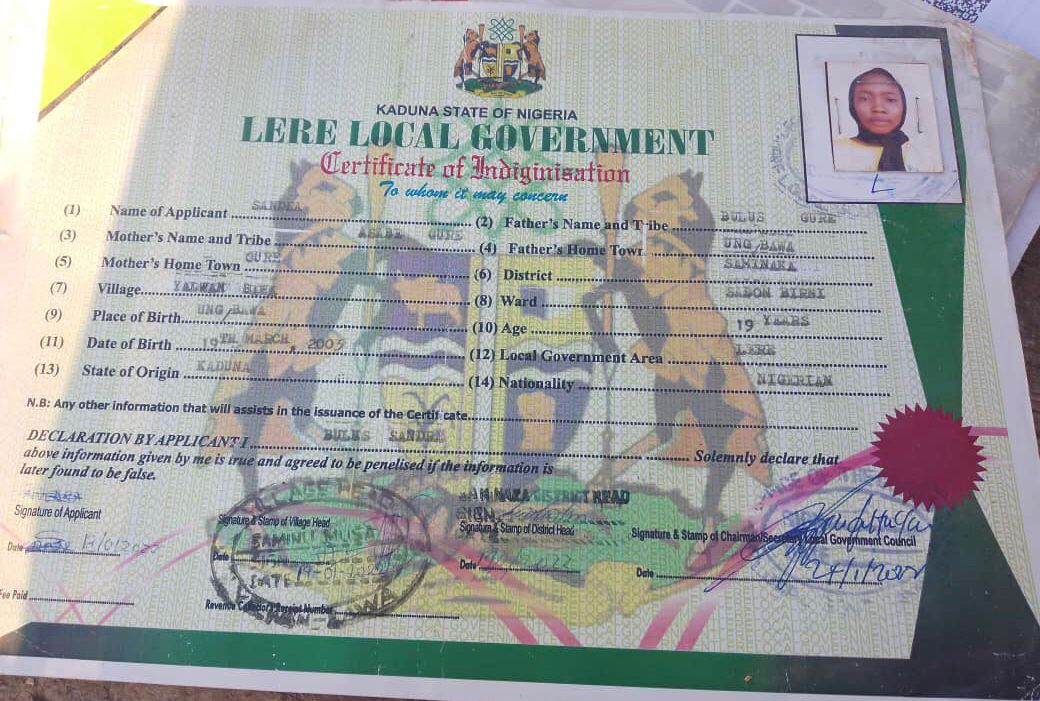 KADUNA STATE OF NIGERIA
LERE LOCAL GOVERNMENT
Certificate of Indiginisation
To whom it may concern
(1) Name of Applicant SANDRA (2) Father's Name and Tribe BULUS GURE
(3) Mother's Name and Tribe ASABE GURE (4) Father's Home Town UNG/BAWA
(5) Mother's Home Town GURE (6) District SAMINAKA
(7) Village YALWAN (8) Ward
(9) Place of Birth UNG/BAWA (10) Age 19 YEARS
(11) Date of Birth 19TH MARCH, (12) Local Government Area LERE
(13) State of Origin KADUNA (14) Nationality NIGERIAN
N.B: Any other information that will assists in the issuance of the Certificate
DECLARATION BY APPLICANT I BULUS SANDRA Solemnly declare that
above information given by me is true and agreed to be penelised if the information is
later found to be false.
Signature of Applicant
Date
Fee Paid
VILLAGE HEAD
Signature & Stamp of Village Head
Date
DATE
Revenue Collector's Receipt Number
SAMINAKA DISTRICT HEAD
SIGN
Signature & Stamp of District Head
Date
Signature & Stamp of Chairman/Secretary Local Government Council
Date